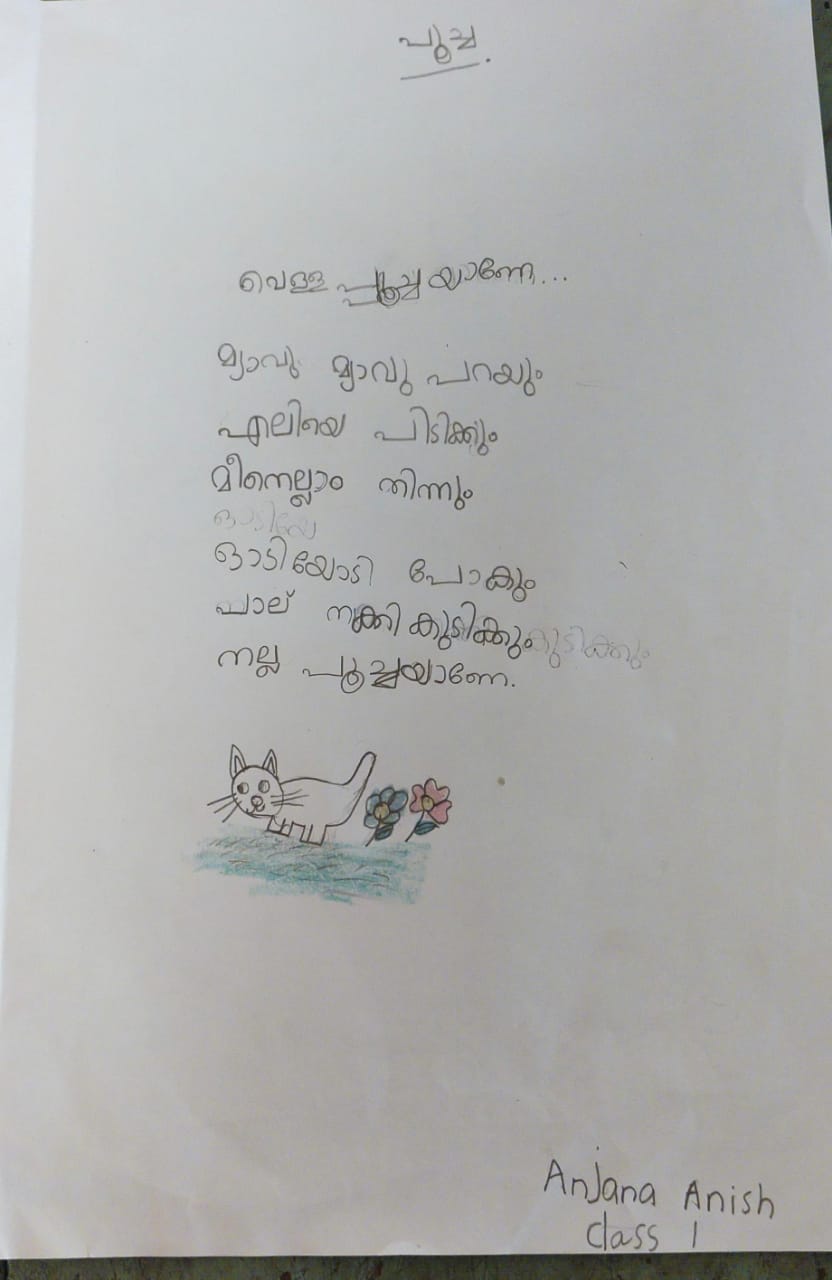 പൂച്ച.
വെള്ള പ്പൂച്ചയാണേ...
മ്യാവു മ്യാവു പറയും
എലിയെ പിടിക്കും
മീനെല്ലാം തിന്നും
ഓടിയോ
ഓടിയോടി പോകും
പാല് നക്കി കുടിക്കും കുടിക്കും
നല്ല പൂച്ചയാണേ.
Anjana Anish
class 1